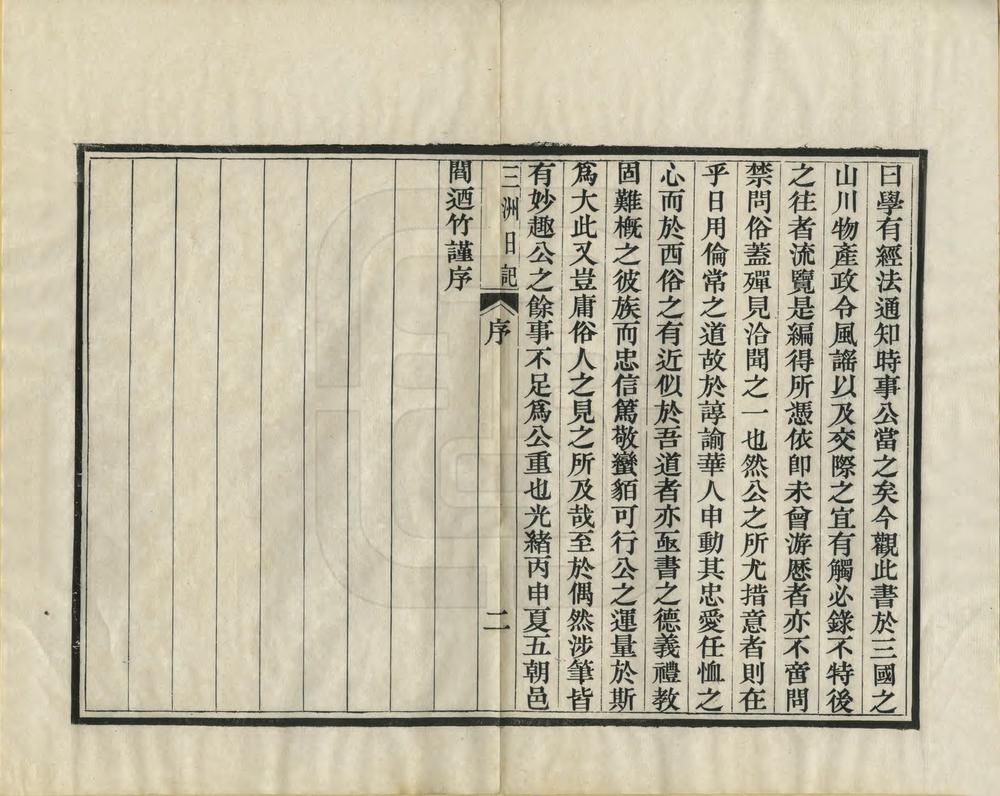 曰學有經法通知時事公當之矣今觀此書於三國之
山川物產政令風謠以及交際之宜有觸必錄不特後
之往者流覽是編得所憑依卽未曾游歷者亦不啻問
禁問俗蓋殫見洽聞之一也然公之所尤措意者則在
乎日用倫常之道故於諄諭華人申動其忠愛任恤之
心而於西俗之有近似於吾道者亦亟書之德義禮教
固難槪之彼族而忠信篤敬蠻貊可行公之運量於斯
爲大此又豈庸俗人之見之所及哉至於偶然涉筆皆
有妙趣公之餘事不足爲公重也光緒丙申夏五朝邑
三洲日記
序
二
閻迺竹謹序